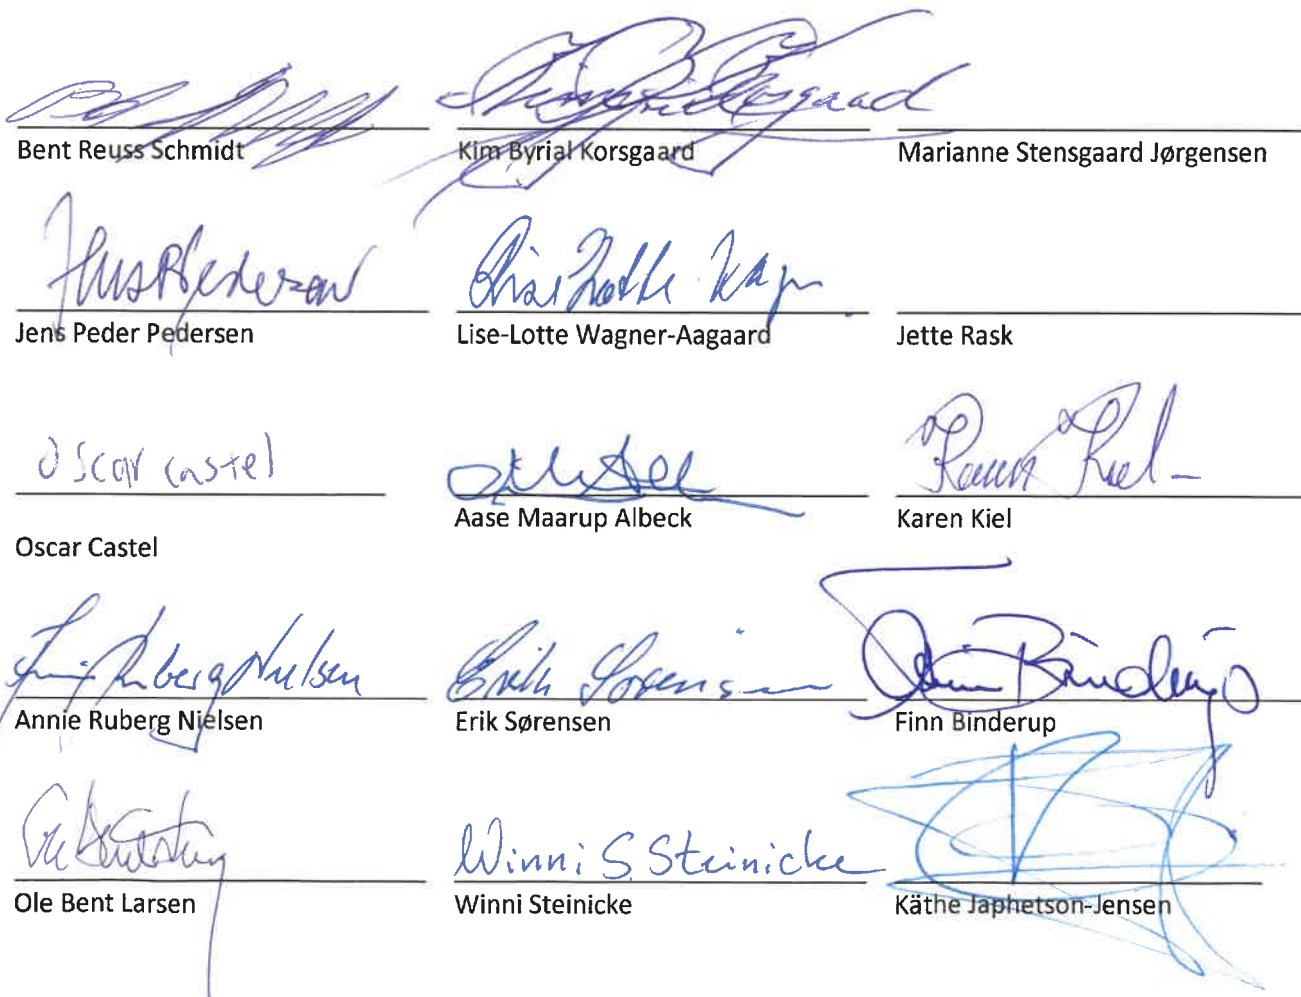 Bent Reuss Schmidt
Kim Byrial Korsgaard
Marianne Stensgaard Jørgensen
Jens Peder Pedersen
Lise-Lotte Wagner-Aagaard
Jette Rask
Oscar Castel
Oscar Castel
Aase Maarup Albeck
Karen Kiel
Karen Kiel
Ruberg Nielsen
Erik Sørensen
Finn Binderup
Annie Ruberg Nielsen
Erik Sørensen
Finn Binderup
Winni S. Steinicke
Ole Bent Larsen
Winni Steinicke
Käthe Japhetson-Jensen